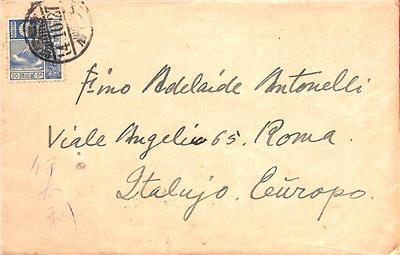 Fino Adelaide Antonelli
Viale Angelio 65. Roma.
Italujo. Eŭropo.